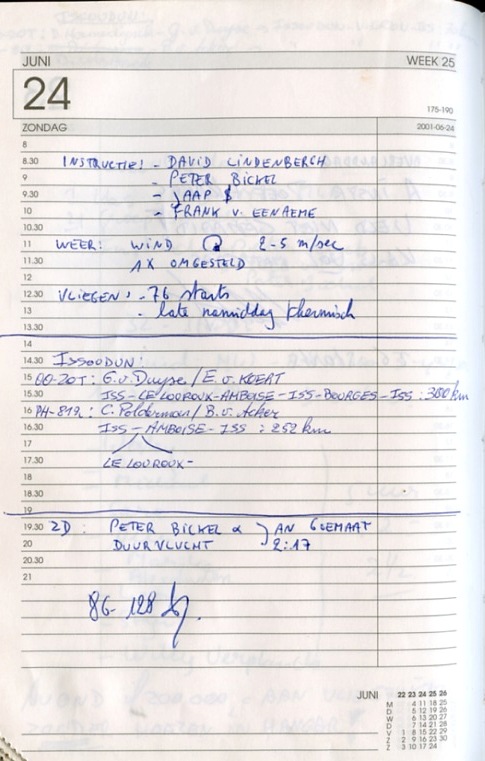 JUNI WEEK 25
24
175-190
ZONDAG 2001-06-24
8
8.30 INSTRUCTIE: - DAVID LINDENBERGH
9 - PETER BICKEL
9.30 - JAAP $
10 - FRANK V. EENAEME
10.30
11 WEER: WIND 2-5 m/sec
11.30 1X OMGESTELD
12
12.30 VLIEGEN: - 76 starts
13 - late namiddag thermisch
13.30
14
14.30 ISSOUDUN:
15 OO-ZOT: G.v. Duyse / E.v. KOERT
15.30 ISS-LE LOUROUX-AMBOISE-ISS-BOURGES-ISS: 380 km
16 PH-819: C. Polderman / B.v. Acker
16.30 ISS-AMBOISE-ISS: 252 km
17
17.30 LE LOUROUX-
18
18.30
19
19.30 2D: PETER BICKEL & JAN GOEMAAT
20 DUURVLUCHT 2:17
20.30
21
86-128
JUNI 22 23 24 25 26
M 4 11 18 25
D 5 12 19 26
W 6 13 20 27
D 7 14 21 28
V 1 8 15 22 29
Z 2 9 16 23 30
Z 3 10 17 24